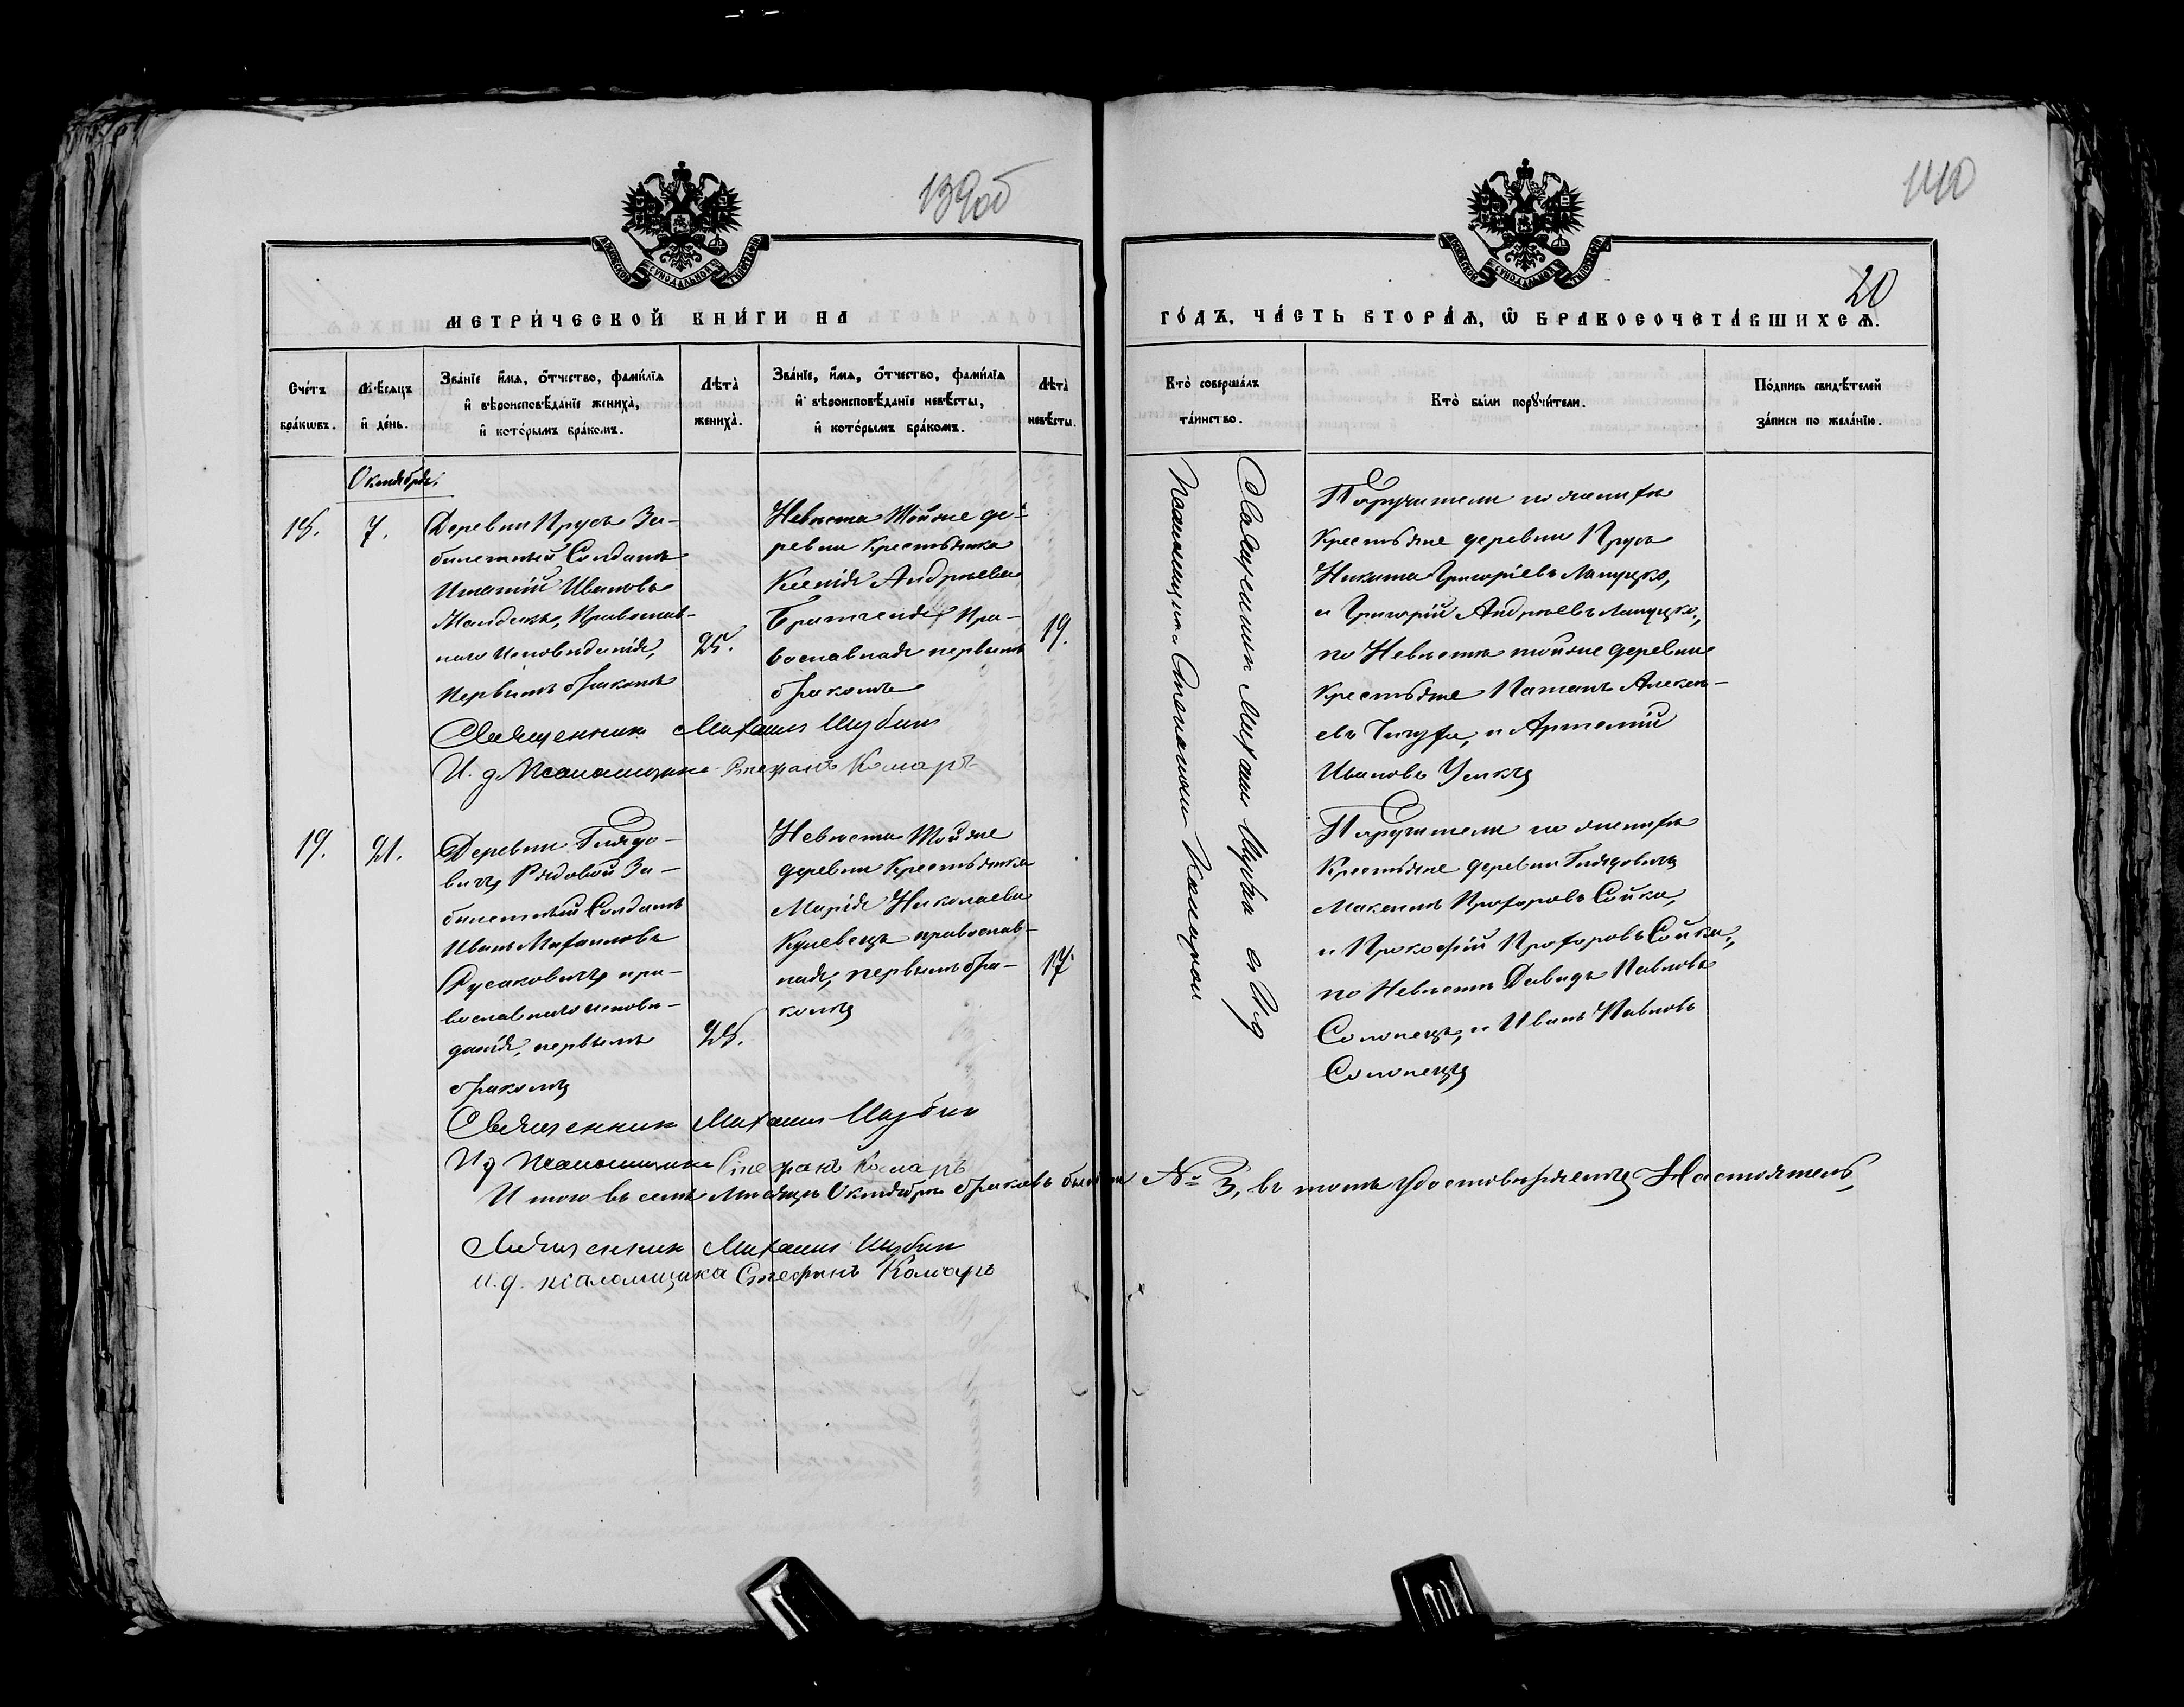 139об
МЕТРИ́ЧЕСКОЙ КНИ́ГИ НА
Сче́тъ бра́кѡвъ.
Мѣ́сяцъ и҆ де́нь.
Зва́нїе и҆́мя, о҆́тчество, фами́лїя и҆ вѣроисповѣ́данїе жениха̀, и҆ кото́рымъ бра́комъ.
Лѣта̀ жениха̀.
Зва́нїе, и҆́мя, о҆́тчество, фами́лїя и҆ вѣроисповѣ́данїе невѣ́сты, и҆ кото́рымъ бра́комъ.
Лѣта̀ невѣ́сты.
Октябрь.
18.
7.
Деревни Прусъ За-
билетный Солдатъ
Игнатій Ивановъ
Православ-
наго исповѣданія,
первымъ бракомъ
25.
Невѣста Тойже де-
ревни Крестьянка
Ксенія Андреева
Пра-
вославная первымъ
бракомъ
19.
Священник Михаил Шубин
И. д. Псаломщика Стефанъ Комаръ
19.
21.
Деревни Гиядо-
вичъ Рядовой За-
билетный Солдатъ
Иванъ Михаиловъ
Русаковичъ пра-
вославнаго исповѣ-
данія, первымъ
бракомъ
25.
Невѣста Тойже
деревни Крестьянка
Марія Николаева
Кулевецъ православ-
ная, первымъ бра-
комъ
17.
Священник Михаил Шубин
И д Псаломщика Стефанъ Комаръ
И того въ семъ мѣсяцѣ Октябрѣ браковъ было № 3, въ томъ удостовѣряемъ Настоятель,
Священник Михаил Шубин
и. д. псаломщика Стефанъ Комаръ
140
20
ГО́ДЪ, ЧА́СТЬ ВТОРА́Я, Ѡ҆ БРАКОСОЧЕТА́ВШИХСЯ.
Кто̀ соверша́лъ та́инство.
Кто̀ бы́ли порꙋчи́тели.
По́дпись свидѣ́телей за́писи по жела́нїю.
Священник Михаил Шубин с И д
Псаломщика Стефаном Комаром
Поручители по женихѣ
Крестьяне деревни Прусъ
Никита Григоріевъ Лапуцко,
и Григорій Андреевъ Лапуцко,
по Невѣстѣ тойже деревни
Крестьяне Потапъ Алексѣ-
евъ и Артемій
Ивановъ
Поручители по женихѣ
Крестьяне деревни Гиядовичъ
Максимъ Прохоровъ Сойка,
и Прокофій Прохоровъ Сойка,
по Невѣстѣ Давидъ Павловъ
Солонецъ, и Иванъ Павловъ
Солонецъ